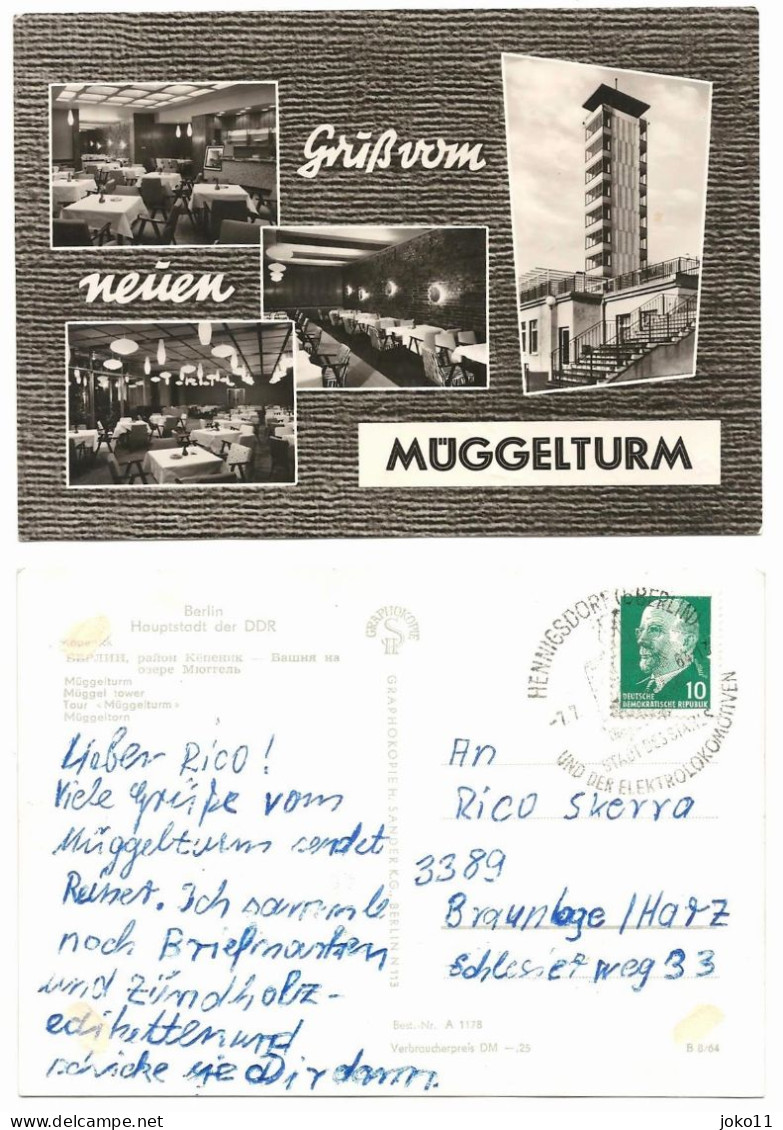 Gruß vom
neuen
MÜGGELTURM
Berlin
Hauptstadt der DDR
БЕРЛИН, район Кёпеник — Башня на
озере Мюггель
Müggelturm
Müggel tower
Tour «Müggelturm»
Müggeltorn
GRAPHOKOPIE
GRAPHOKOPIE H. SANDER K.G., BERLIN N 113
HENNIGSDORF (b BERLIN)
-7.7
STADT DES STAHLS
UND DER ELEKTROLOKOMOTIVEN
DEUTSCHE
DEMOKRATISCHE REPUBLIK
10
Lieber Rico!
Viele Grüße vom
Müggelturm sendet
Ich sammle
noch Briefmarken
und Zündholz-
ediketten und
schicke sie Dir dann.
An
Rico Skerra
3389
Braunlage / Harz
Schlesierweg 33
Best.-Nr. A 1178
Verbraucherpreis DM —.25
B 8/64
joko11